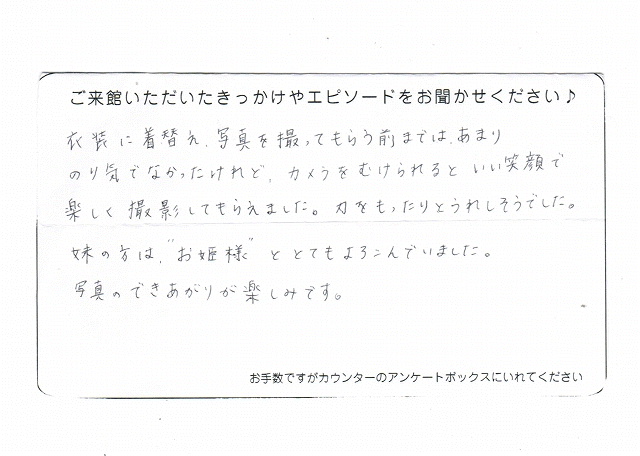 ご来館いただいたきっかけやエピソードをお聞かせください♪
衣装に着替え、写真を撮ってもらう前までは、あまり
のり気でなかったけれど、カメラをむけられるといい笑顔で
楽しく撮影してもらえました。刀をもったりとうれしそうでした。
妹の方は、"お姫様"ととてもよろこんでいました。
写真のできあがりが楽しみです。
お手数ですがカウンターのアンケートボックスにいれてください